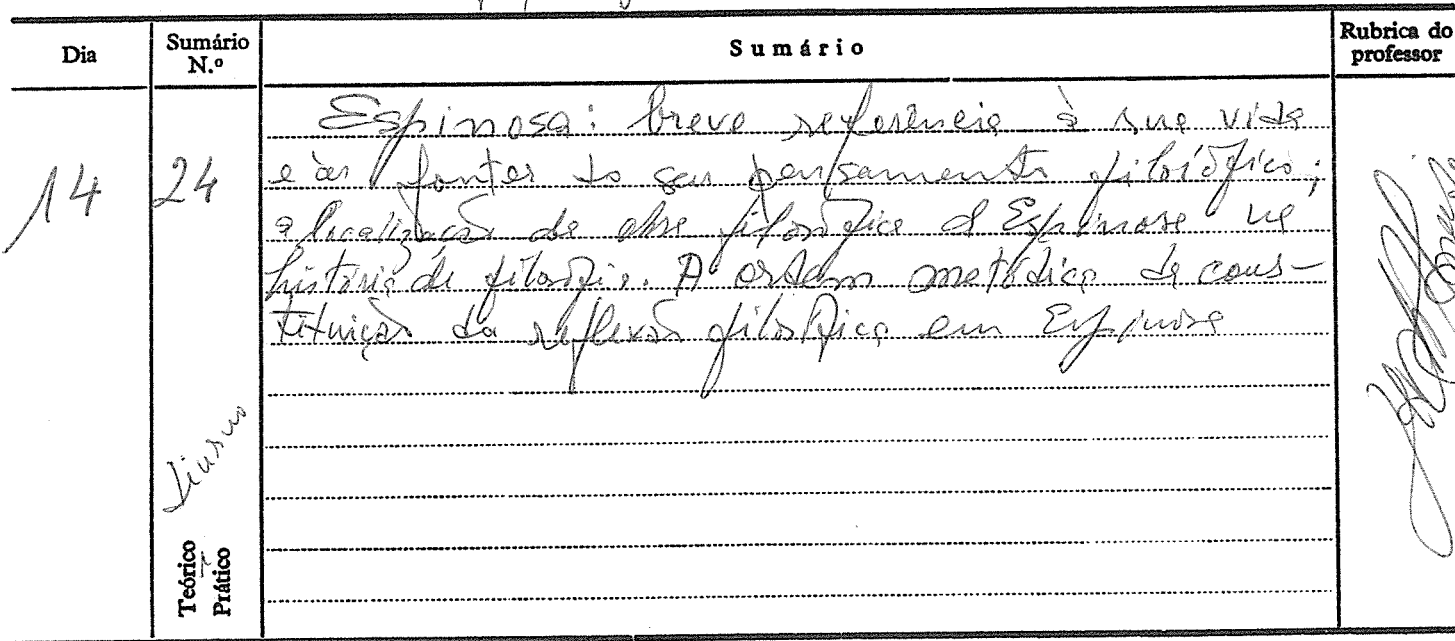 Dia
Sumário N.º
Sumário
Rubrica do professor
14
24
Espinosa: breve referência à sua vida
e às fontes do seu pensamento filosófico;
a localização da obra filosófica d Espinosa na
história da filosofia. A ordem metódica da cons-
tituição da reflexão filosófica em Espinosa
Diurno
Teórico
Prático